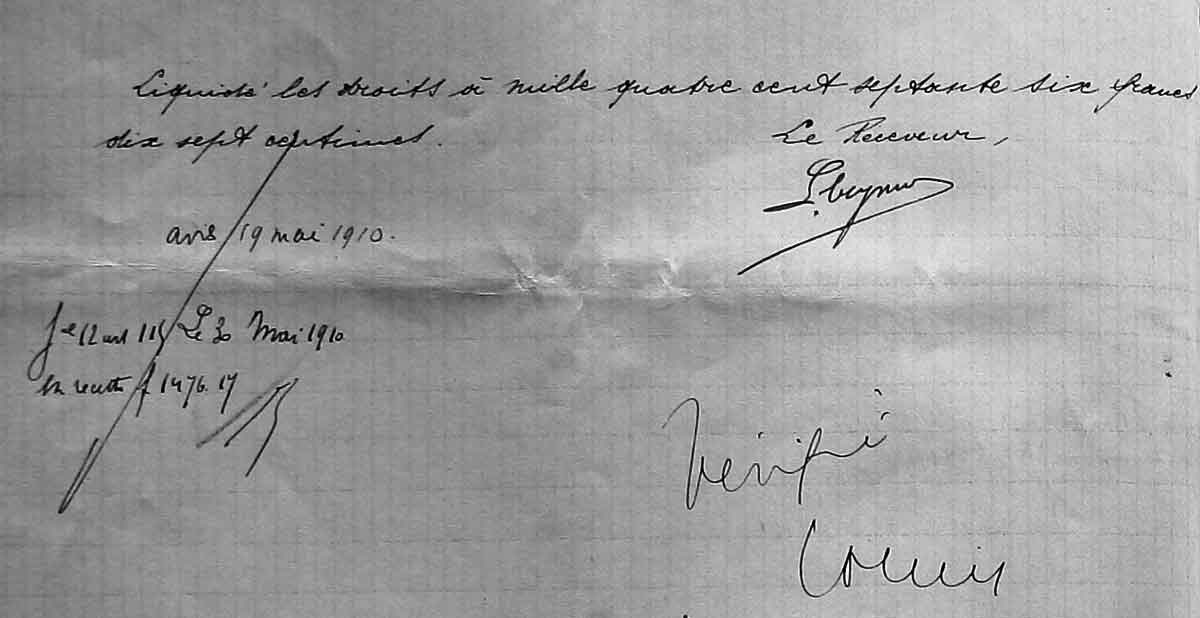 Liquidé les droits à mille quatre cent septante six francs
dix sept centimes.
Le Receveur,
avis 19 mai 1910.
Jal 12 art 115 Le 30 Mai 1910
en recette f 1476.17
Vérifié